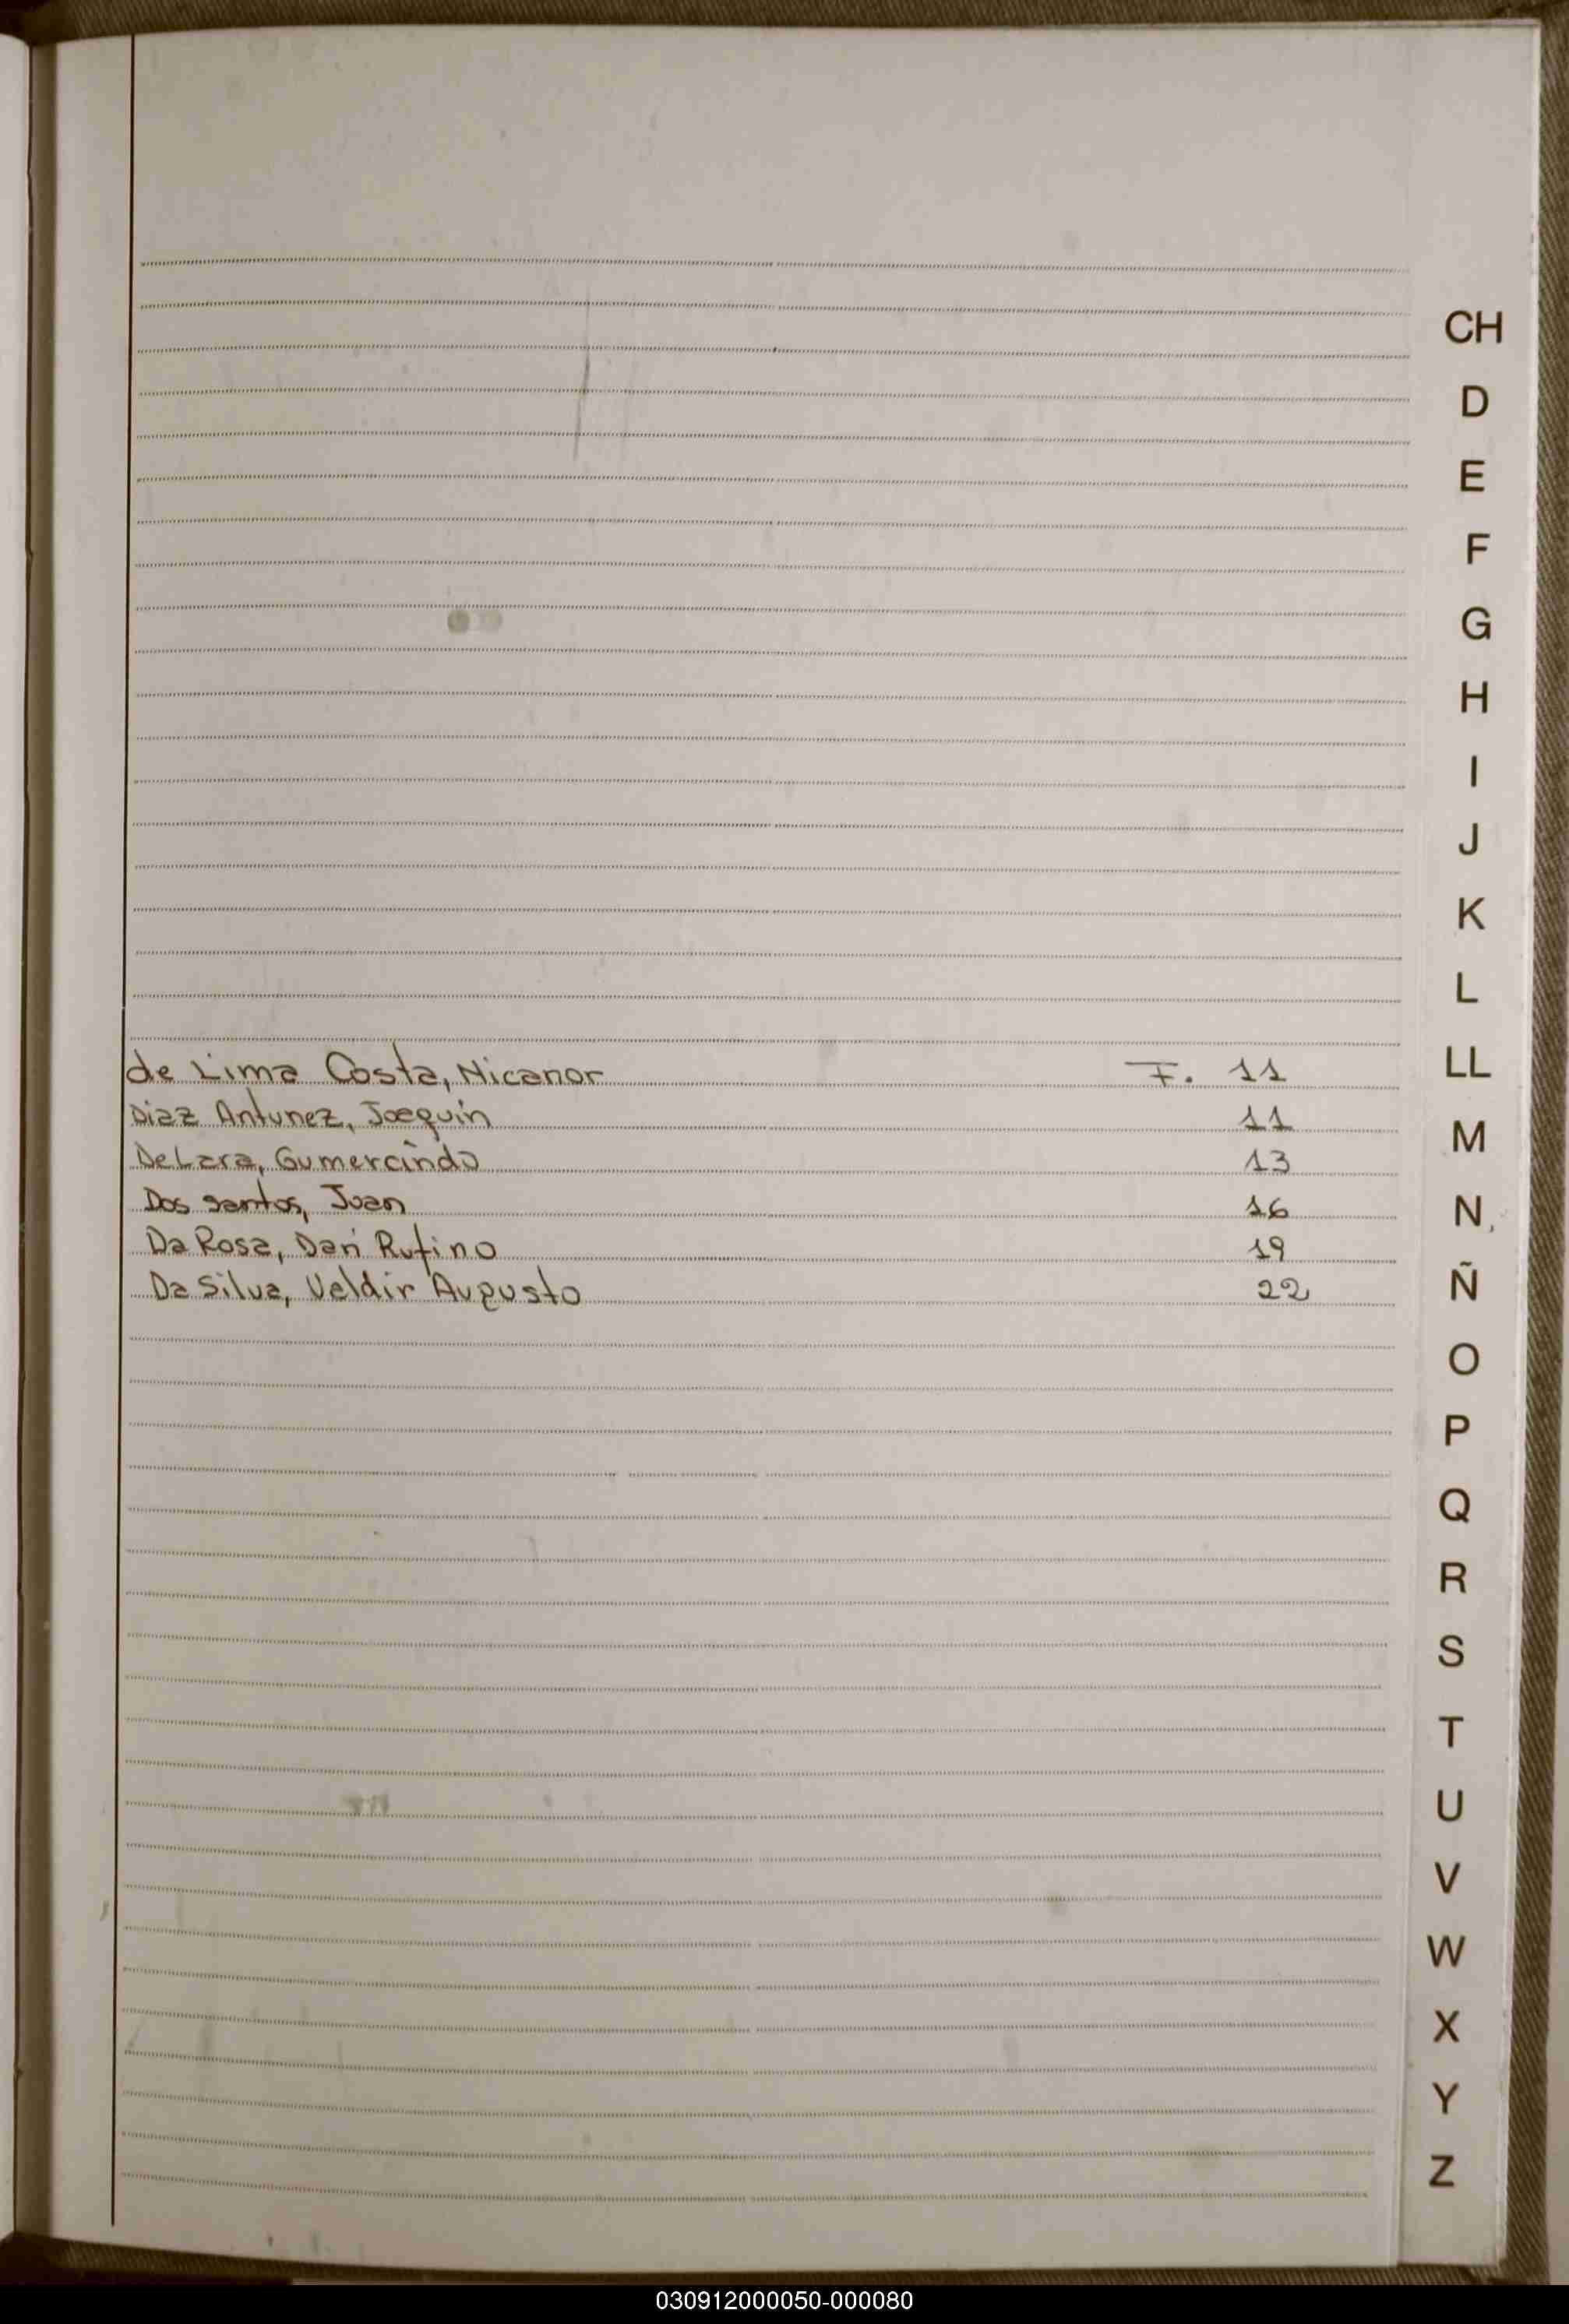 CH
D
E
F
G
H
I
J
K
L
LL
M
N
Ñ
O
P
Q
R
S
T
U
V
W
X
Y
Z
de Lima Costa, Nicanor F. 11
Diaz Antunez, Joaquín 11
De Lara, Gumercindo 13
Dos santos, Juan 16
Da Rosa, Dari Rufino 19
Da Silva, Valdir Augusto 22
030912000050-000080